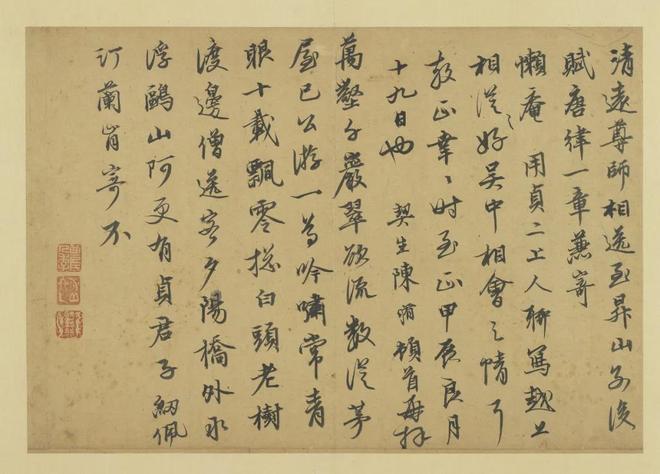 清遠尊師相送至昇山別後
賦唐律一章兼寄
懶庵用貞二上人聊篤越上
相從之好吳中相會之情
教正幸〻時至正甲辰良月
十九日也 契生陳 頓首再拜
萬壑千巖翠欲流數茅
屋已公游一為吟嘯常青
眼十載飄零總白頭老樹
渡邊僧送客夕陽橋外水
浮鷗山阿更有貞君子紉佩
汀蘭肯寄不